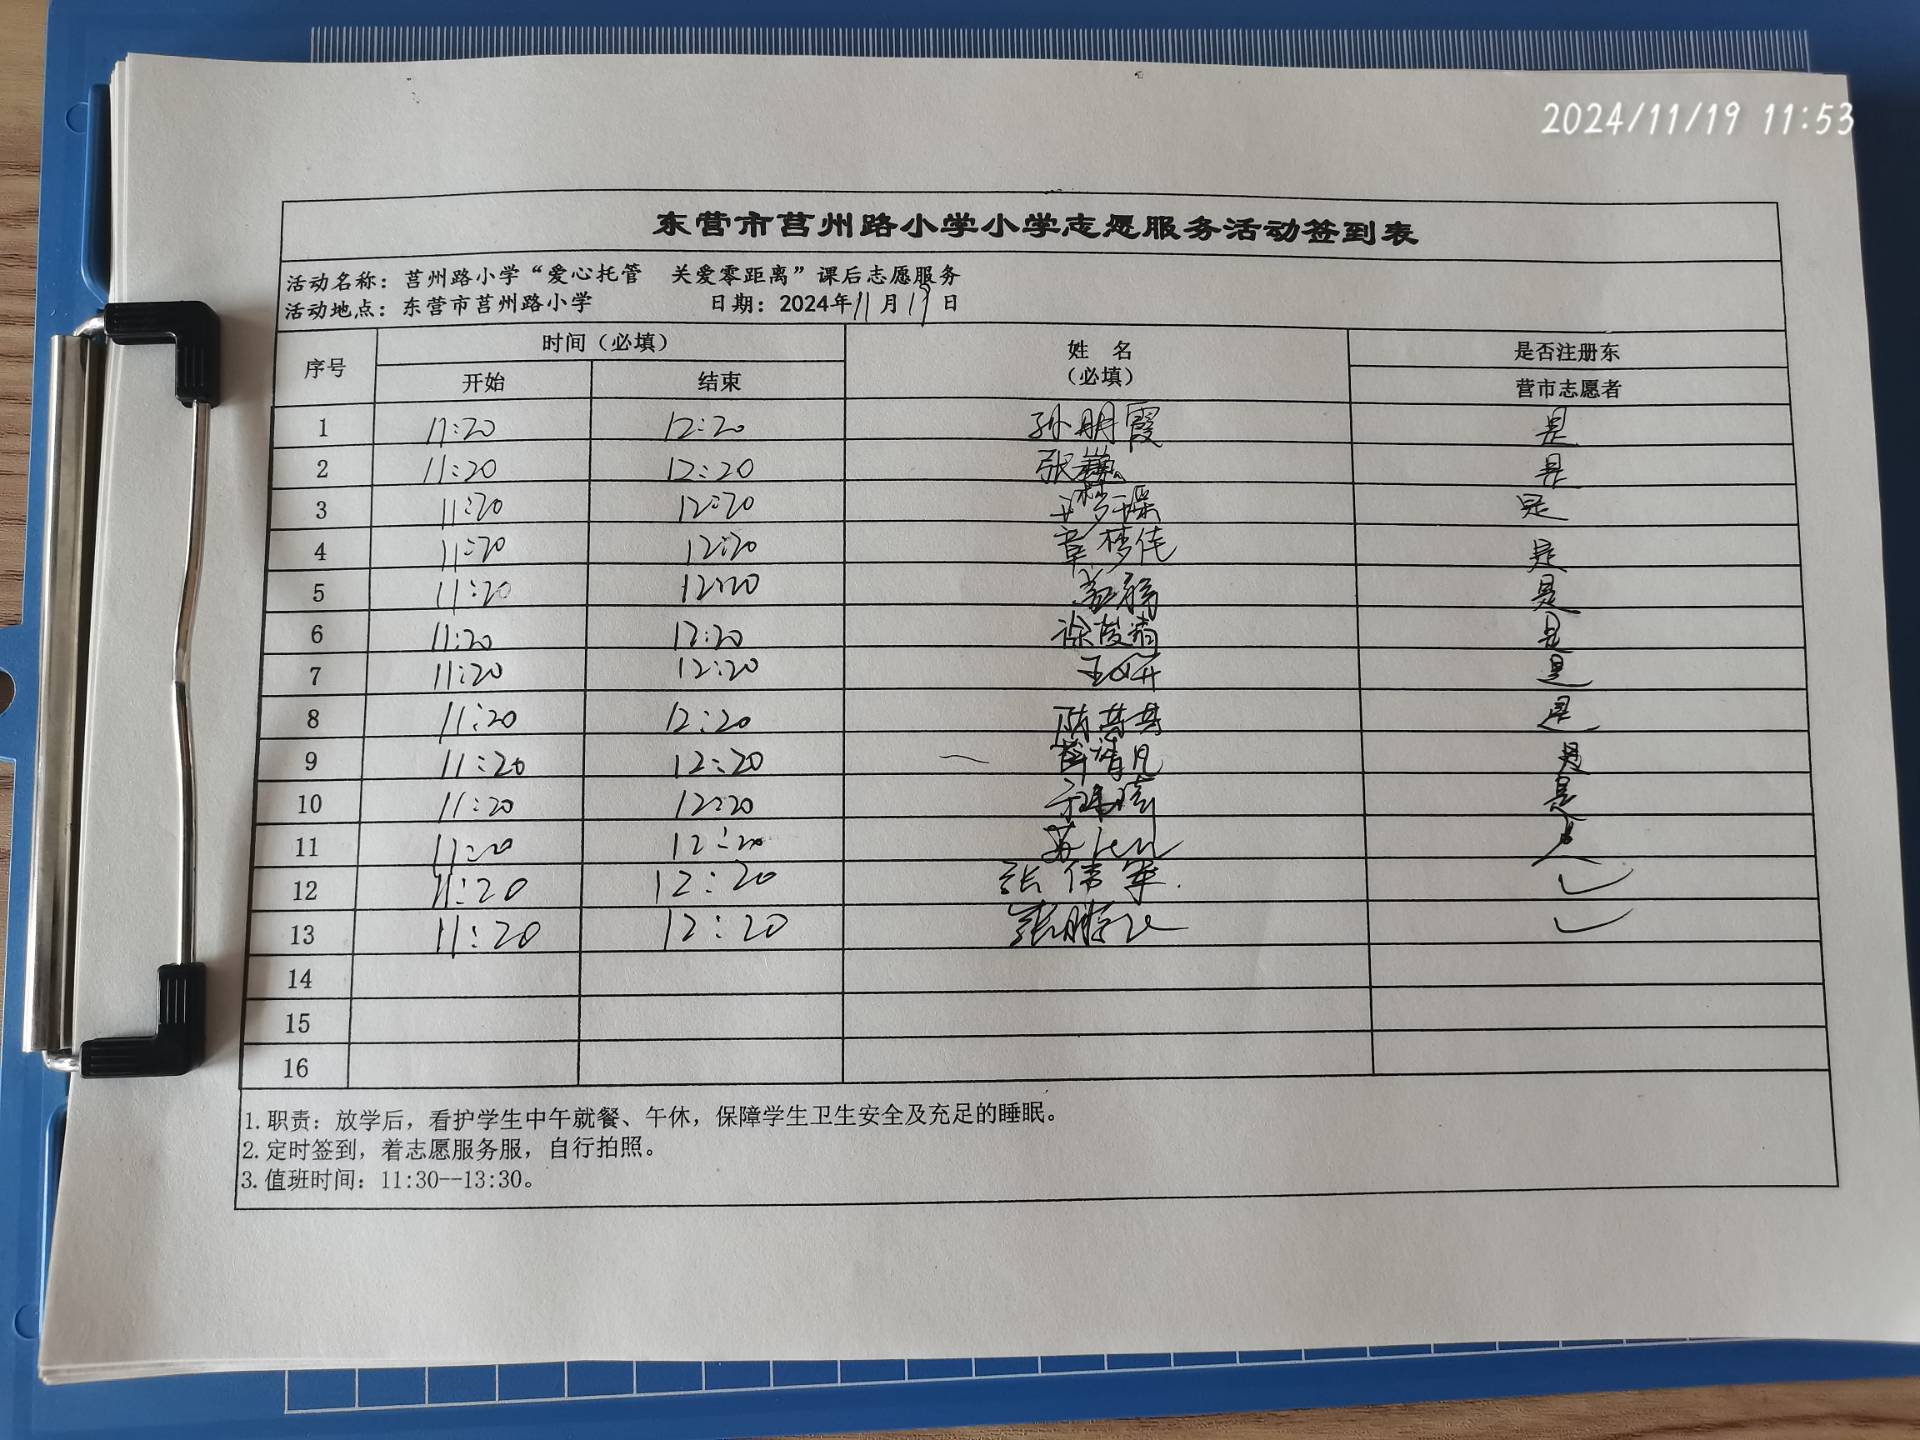 2024/11/19 11:53
东营市莒州路小学小学志愿服务活动签到表
活动名称：莒州路小学“爱心托管 关爱零距离”课后志愿服务
活动地点：东营市莒州路小学 日期：2024年11月19日
序号 时间（必填） 姓 名 （必填） 是否注册东
开始 结束 营市志愿者
1 11:20 12:20 孙明霞 是
2 11:20 12:20 张 是
3 11:20 12:20 是
4 11:20 12:20 章梦佳 是
5 11:20 12:20 是
6 11:20 12:20 徐 是
7 11:20 12:20 王 是
8 11:20 12:20 陈 是
9 11:20 12:20 薛清月 是
10 11:20 12:20 是
11 11:20 12:20 苏
12 11:20 12:20 张伟军 ✓
13 11:20 12:20 张鹏飞 ✓
14
15
16
1.职责：放学后，看护学生中午就餐、午休，保障学生卫生安全及充足的睡眠。
2.定时签到，着志愿服务服，自行拍照。
3.值班时间：11:30--13:30。